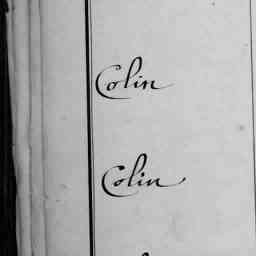 Colin
Colin